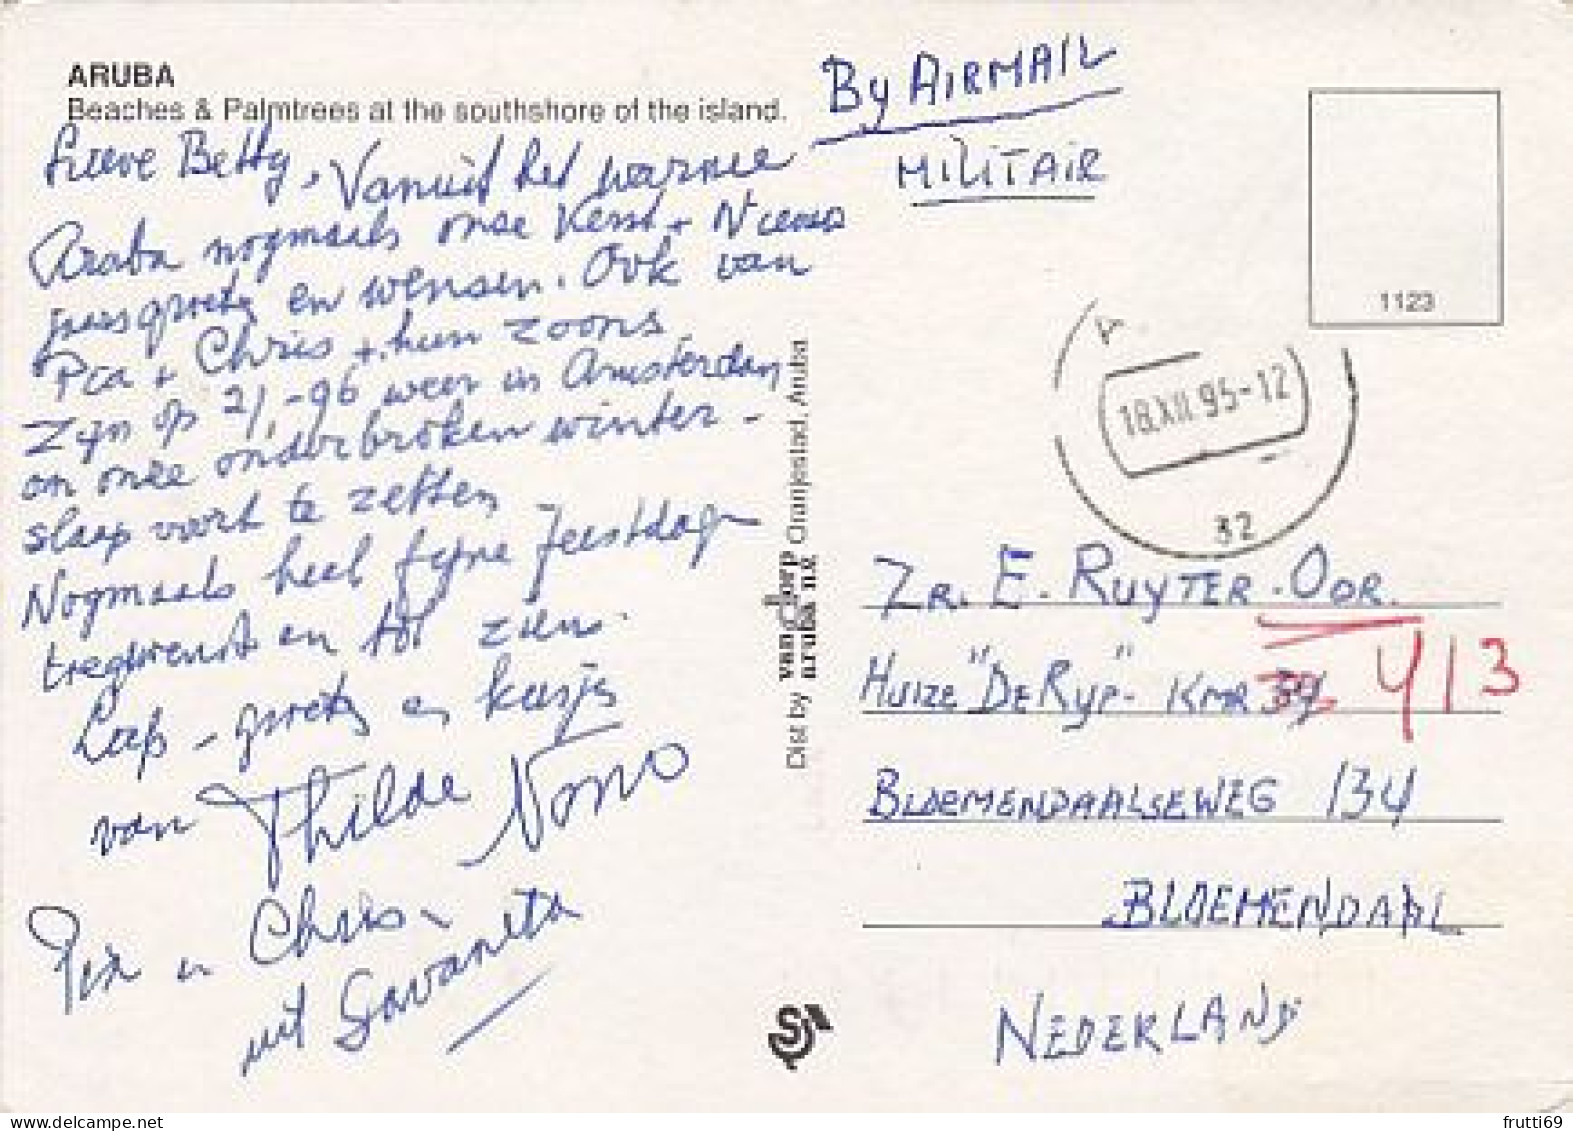 ARUBA
Beaches & Palmtrees at the southshore of the island.
Lieve Betty, Vanuit het warme
Aruba nogmaals onze Kerst + Nieuw
jaarsgroeten en wensen. Ook van
Pia + Chris + hun zoons
Zijn op 2/1-96 weer in Amsterdam
om onze onderbroken winter-
slaap voort te zetten
Nogmaals heel fijne feestdagen
toegewenst en tot ziens.
Liefs - groetjes en kusjes
van Thilde Nono
Pia en Chris
uit Savaneta
By AIRMAIL
MILITAIR
1123
18.XII.95-12
32
ZR. E. RUYTER-OOR.
HUIZE "DE RYP" KMR 413
BLOEMENDAALSEWEG 134
BLOEMENDAAL
NEDERLAND
Dist by van dorp aruba n.v. Oranjestad, Aruba
frutti69